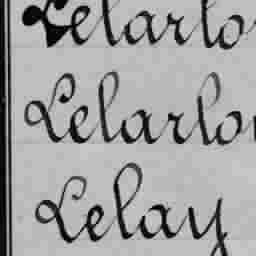 Lelarlo
Lelarlo
Lelay